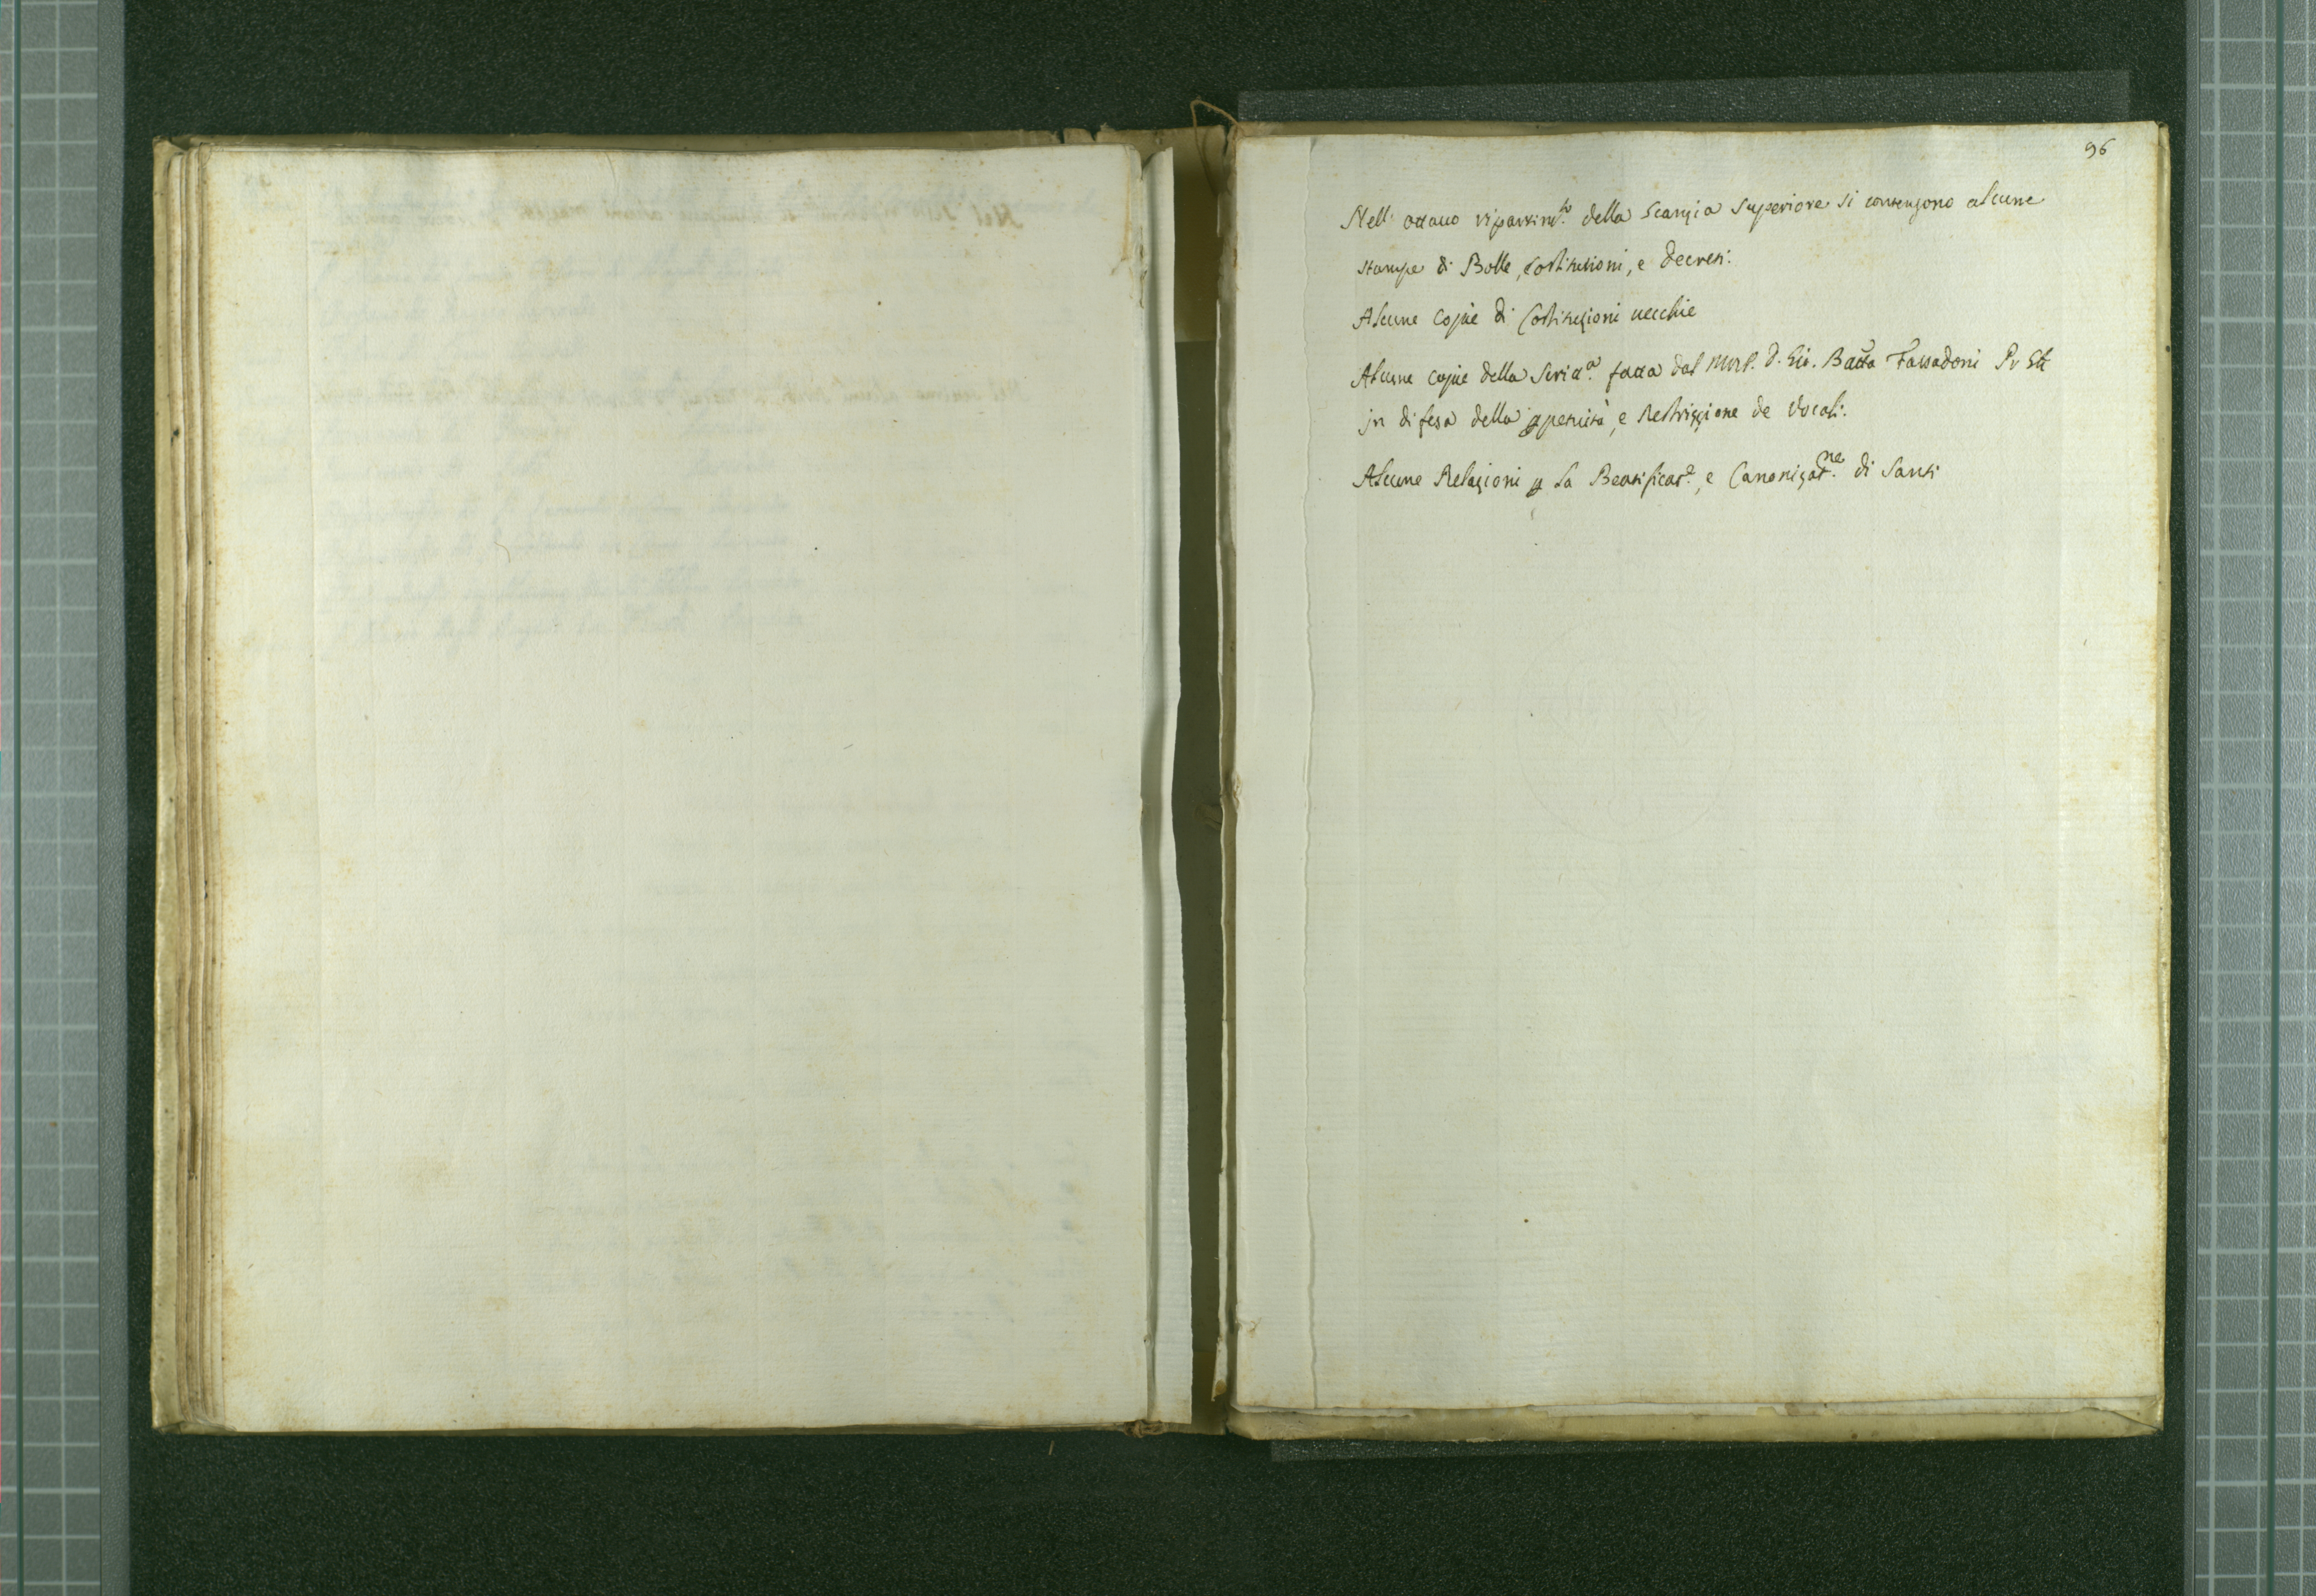 96
Nell' ottauo ripartim.to della Scanzia Superiore si contengono alcune
stampe di Bolle, Costitutioni, e decreti.
Alcune Copie di Costituzioni uecchie
Alcune Copie della Scritt.a fatta dal D. Gio. Batta
in difesa della ꝑpetuità, e Restrizzione de Vocali.
Alcune Relazioni ꝑ la Beatificat.e, e Canonizat.ne di Santi